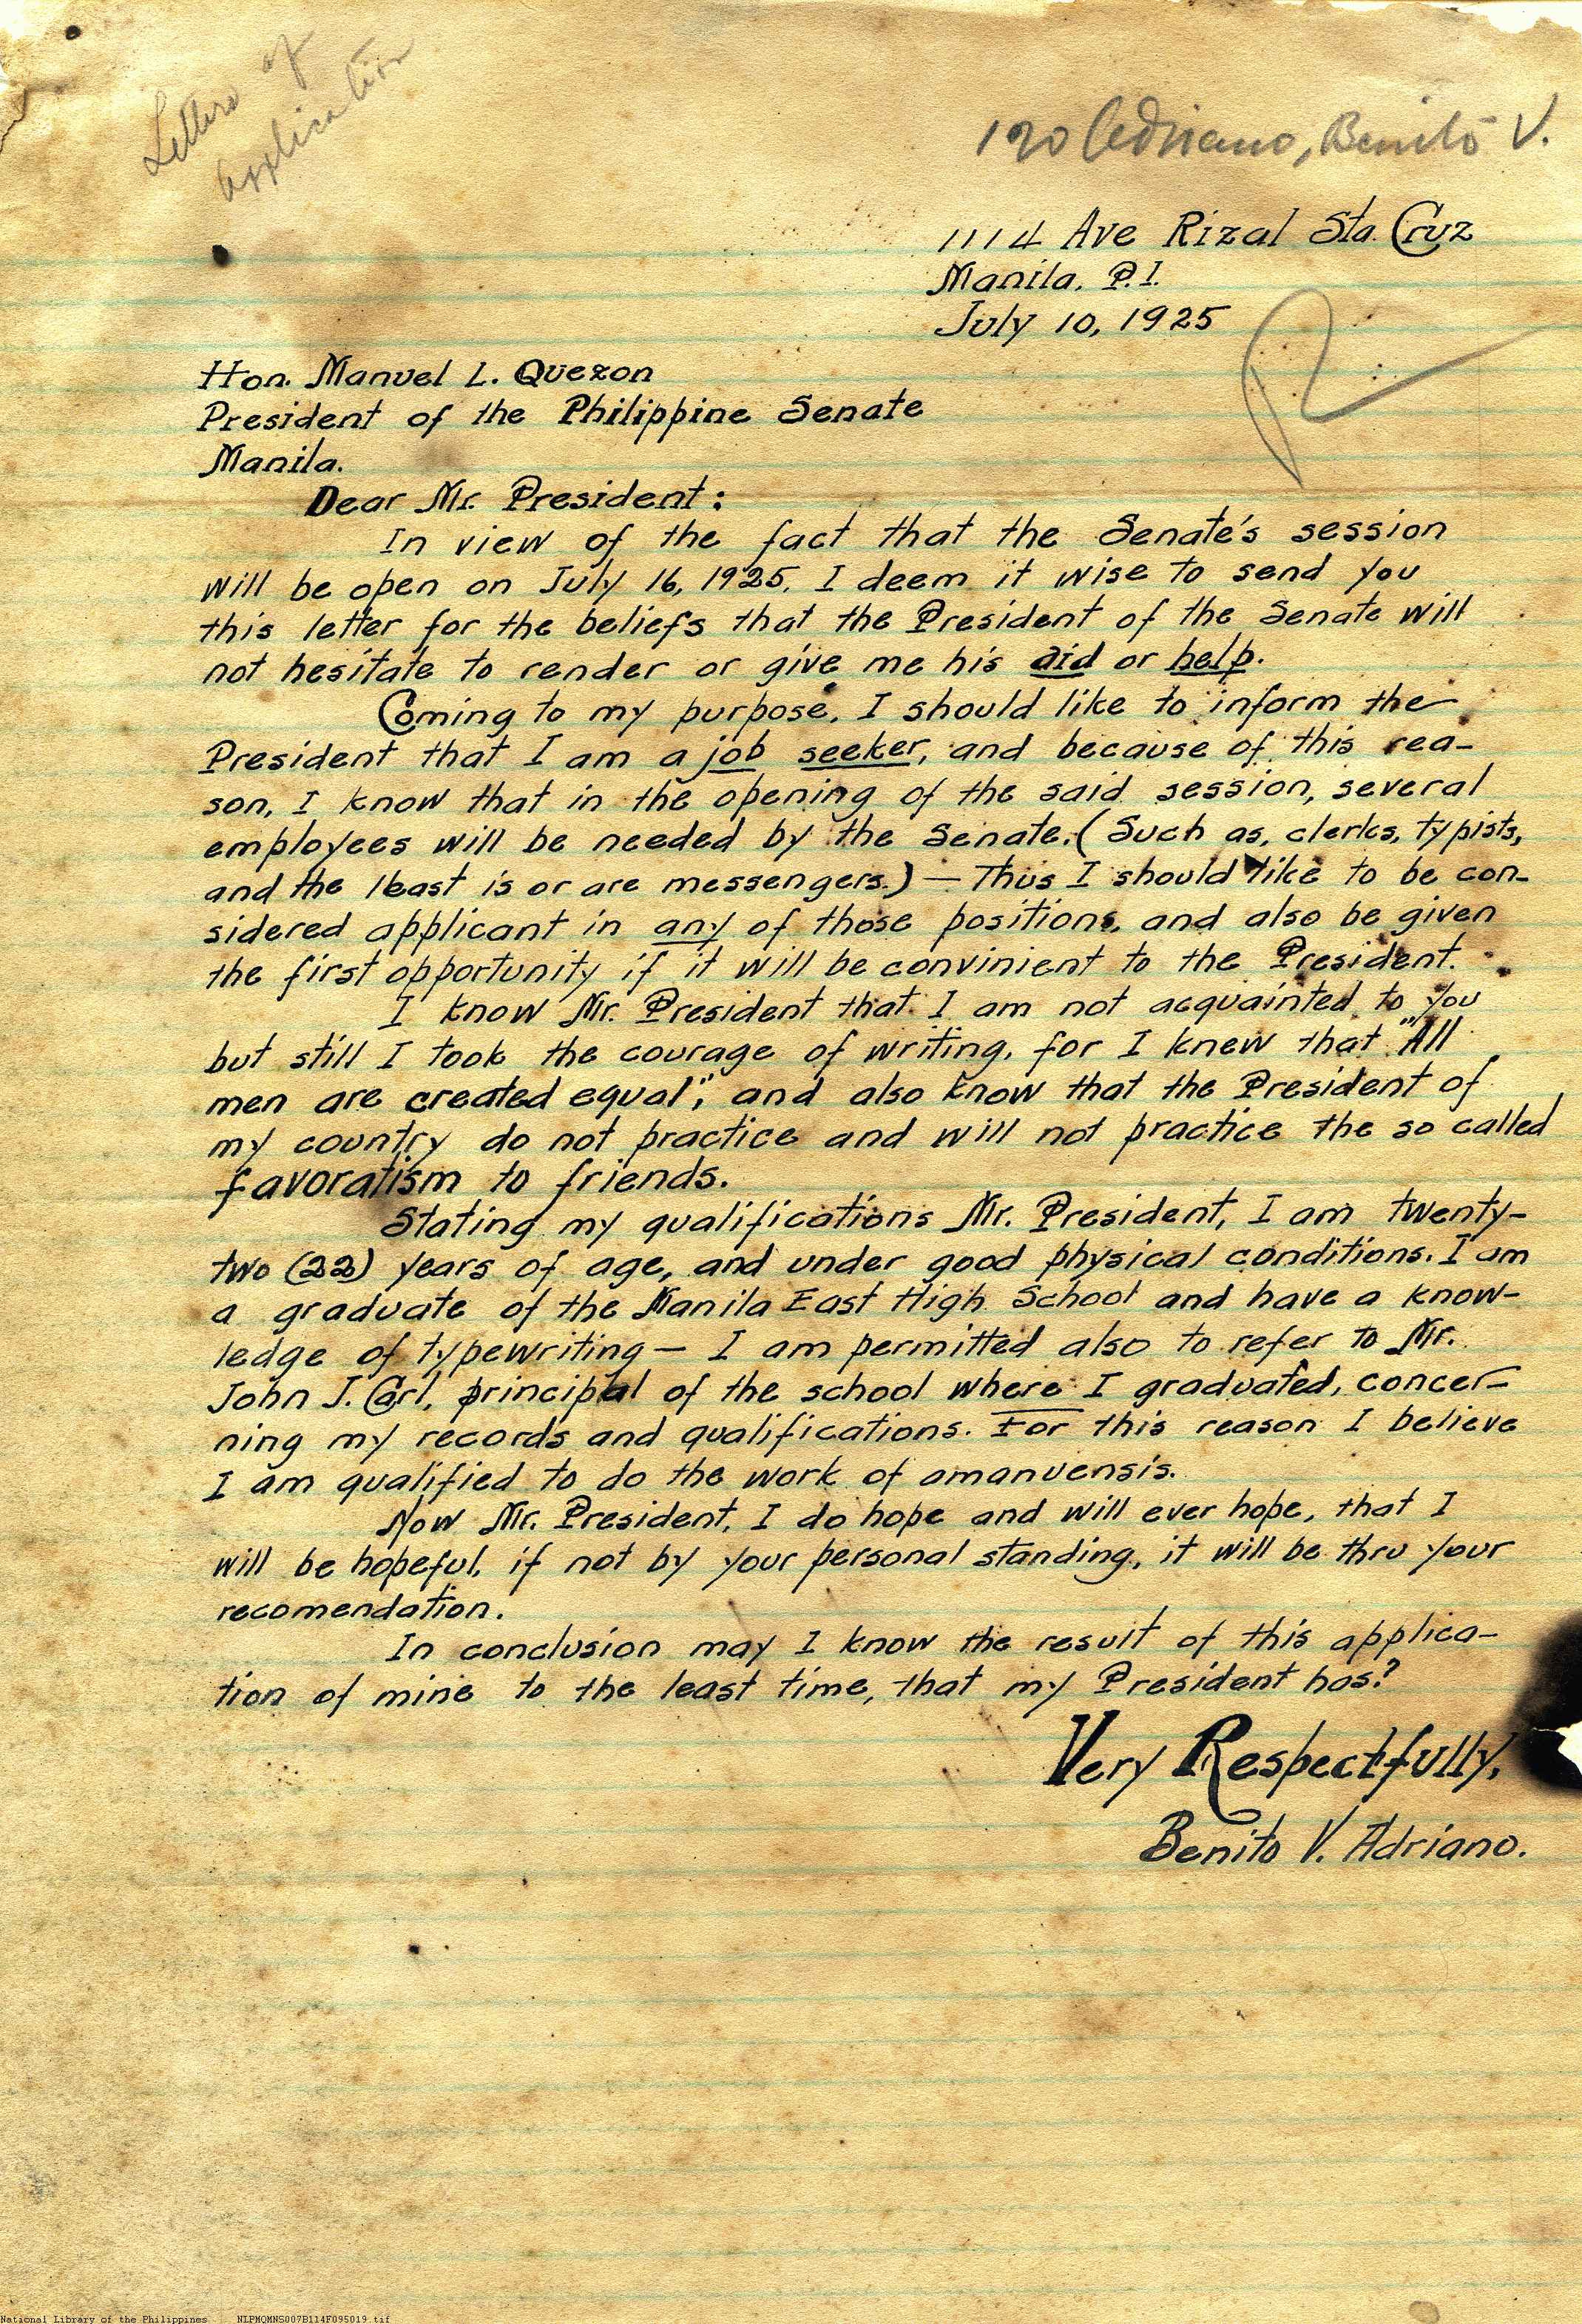 Letters of
application
120 Adriano, Benito V.
1114 Ave Rizal Sta. Cruz
Manila, P.I.
July 10, 1925
Hon. Manuel L. Quezon
President of the Philippine Senate
Manila.
Dear Mr. President:
In view of the fact that the Senate's session
will be open on July 16, 1925, I deem it wise to send you
this letter for the beliefs that the President of the Senate will
not hesitate to render or give me his aid or help.
Coming to my purpose, I should like to inform the
President that I am a job seeker, and because of this rea-
son, I know that in the opening of the said session, several
employees will be needed by the Senate. (Such as, clerks, typists,
and the least is or are messengers.) — Thus I should like to be con-
sidered applicant in any of those positions, and also be given
the first opportunity if it will be convinient to the President.
I know Mr. President that I am not acquainted to you
but still I took the courage of writing, for I knew that "All
men are created equal", and also know that the President of
my country do not practice and will not practice the so called
favoratism to friends.
Stating my qualifications Mr. President, I am twenty-
two (22) years of age, and under good physical conditions. I am
a graduate of the Manila East High School and have a know-
ledge of typewriting — I am permitted also to refer to Mr.
John J. Carl, principal of the school where I graduated, concer-
ning my records and qualifications. For this reason I believe
I am qualified to do the work of amanuensis.
Now Mr. President, I do hope and will ever hope, that I
will be hopeful, if not by your personal standing, it will be thru your
recomendation.
In conclusion may I know the result of this applica-
tion of mine to the least time, that my President has?
Very Respectfully,
Benito V. Adriano.
National Library of the Philippines NLPMQMNS007B114F095019.tif